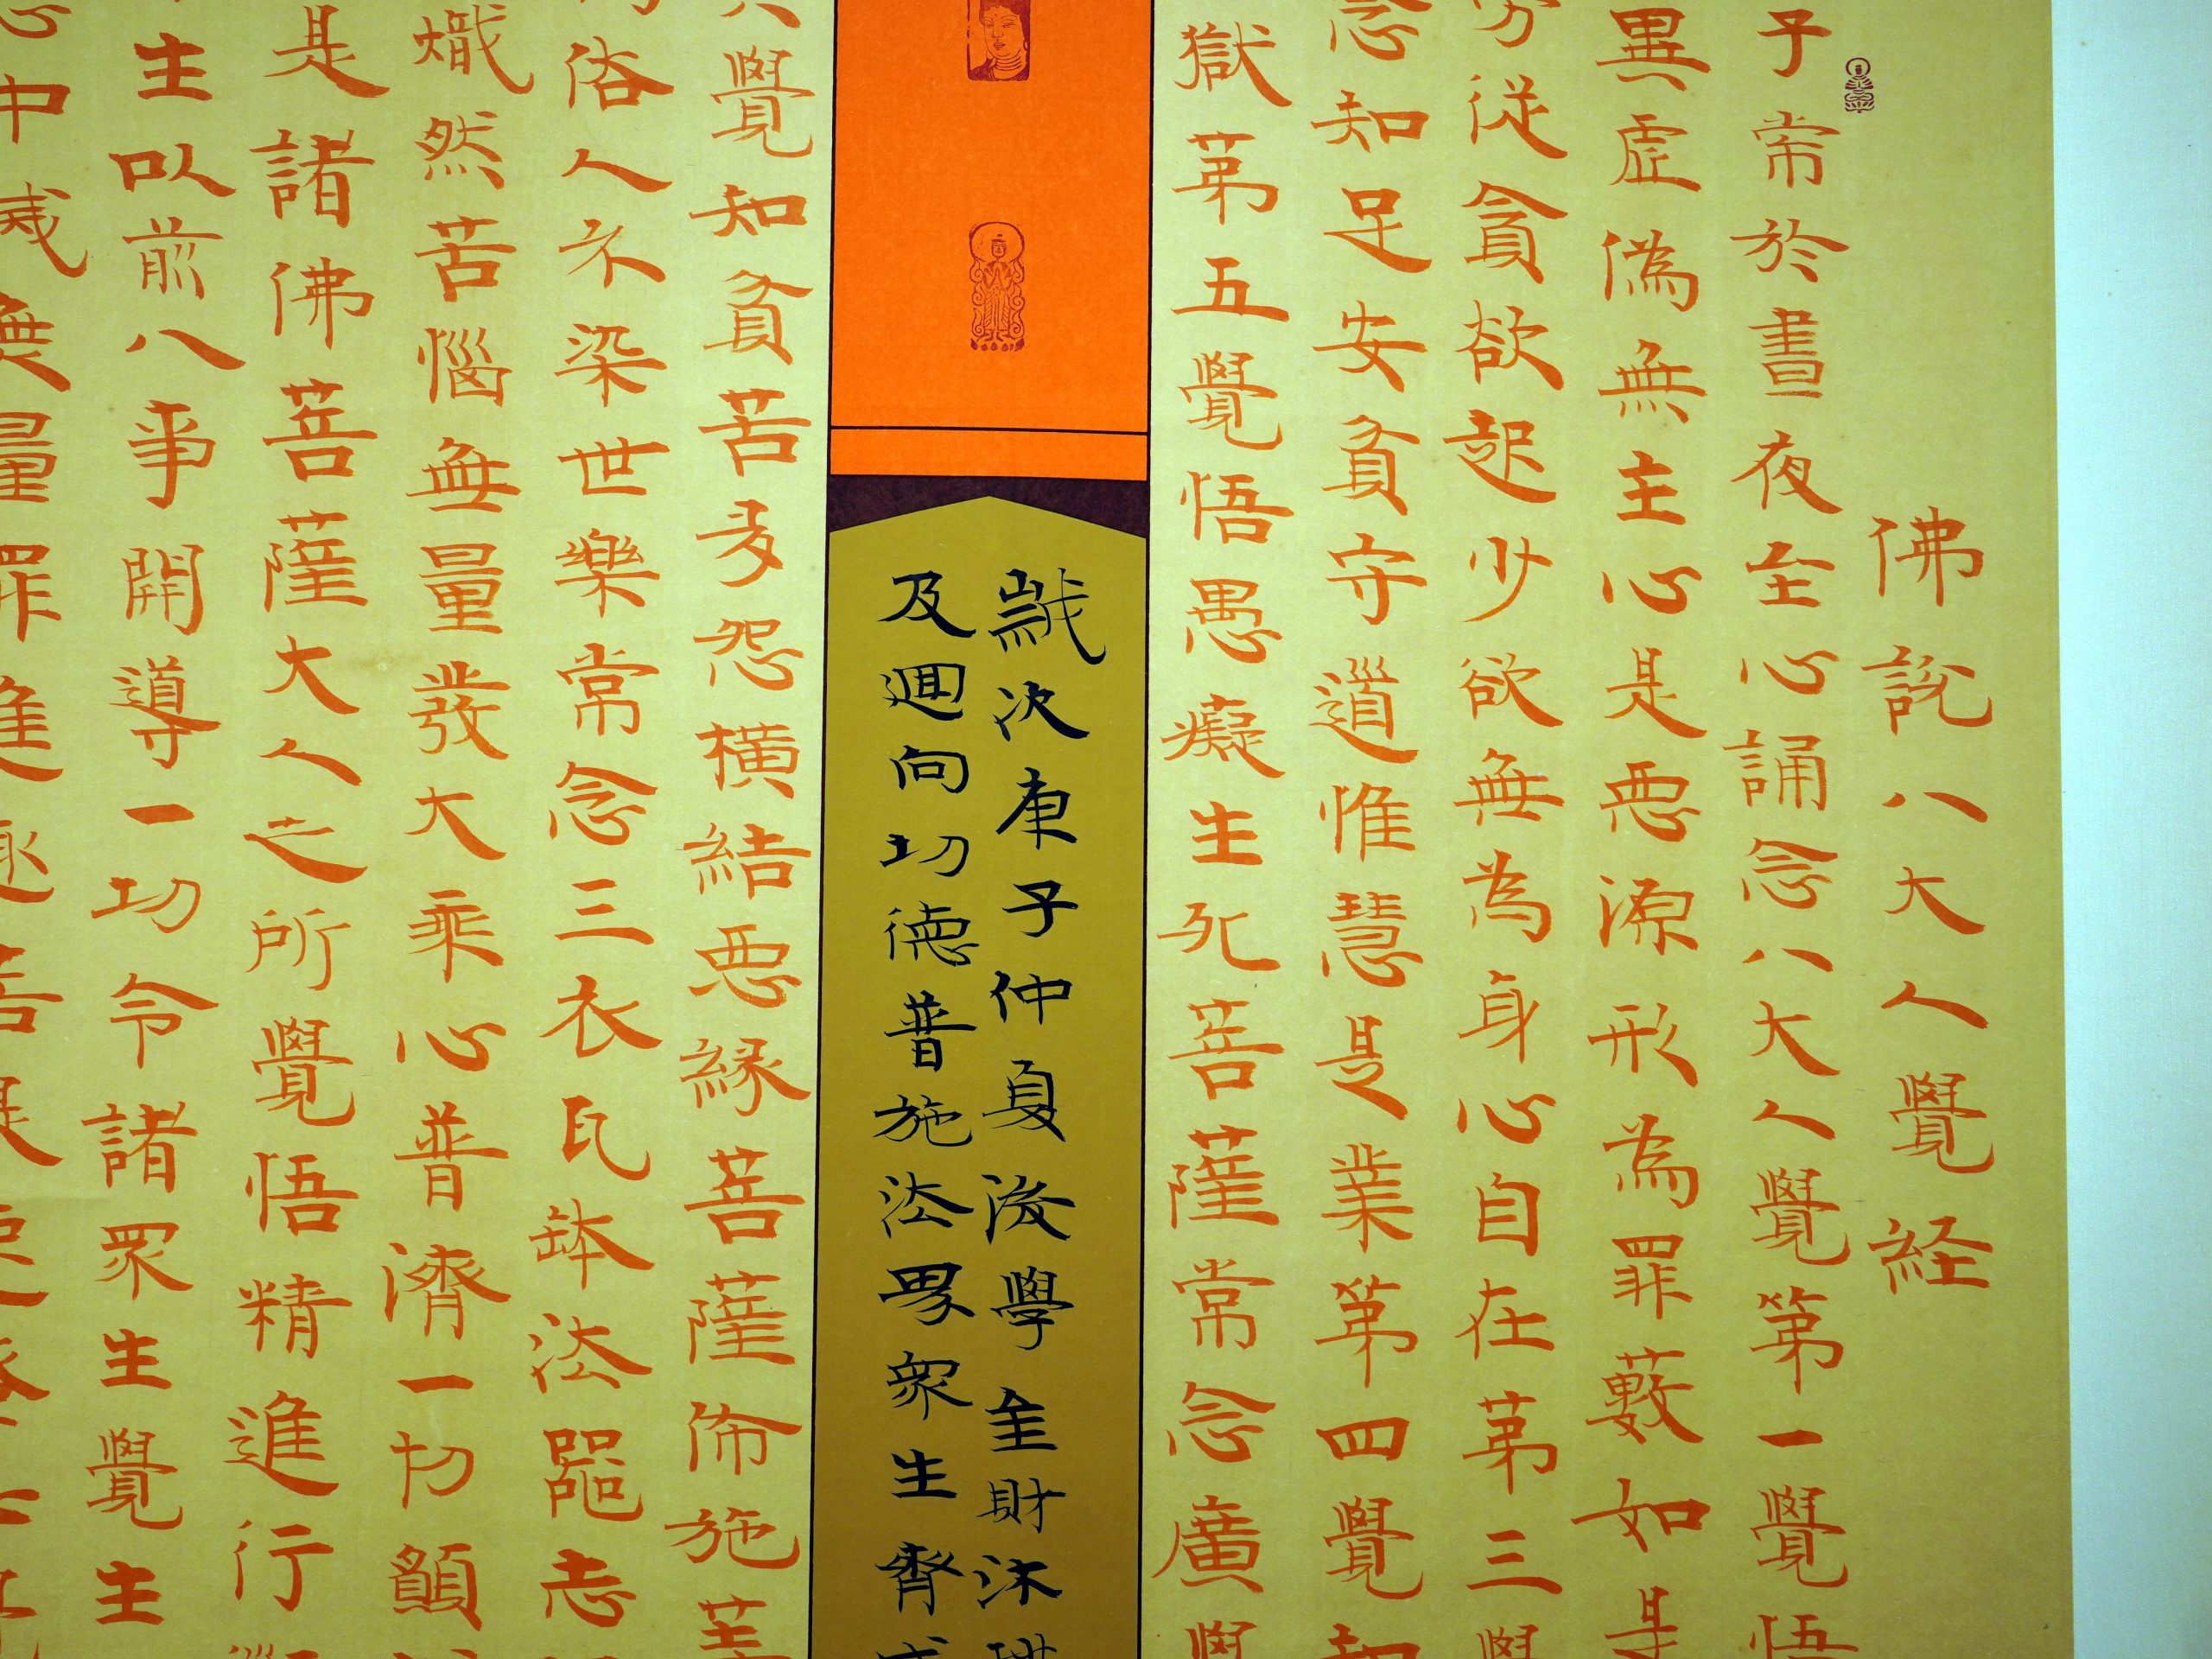 佛說八大人覺經
子常於晝夜至心誦念八大人覺第一覺悟
異虛偽無主心是惡源形為罪藪如是
勞從貪欲起少欲無為身心自在第三覺
念知足安貧守道惟慧是業第四覺知
獄第五覺悟愚癡生死菩薩常念廣學
歲次庚子仲夏後學圭財沐
及迴向功德普施法界眾生齊成
六覺知貧苦多怨橫結惡緣菩薩布施等
俗人不染世樂常念三衣瓦缽法器志
熾然苦惱無量發大乘心普濟一切願
是諸佛菩薩大人之所覺悟精進行
主以前八事開導一切令諸眾生覺生
心中滅無量罪進趣菩提速登